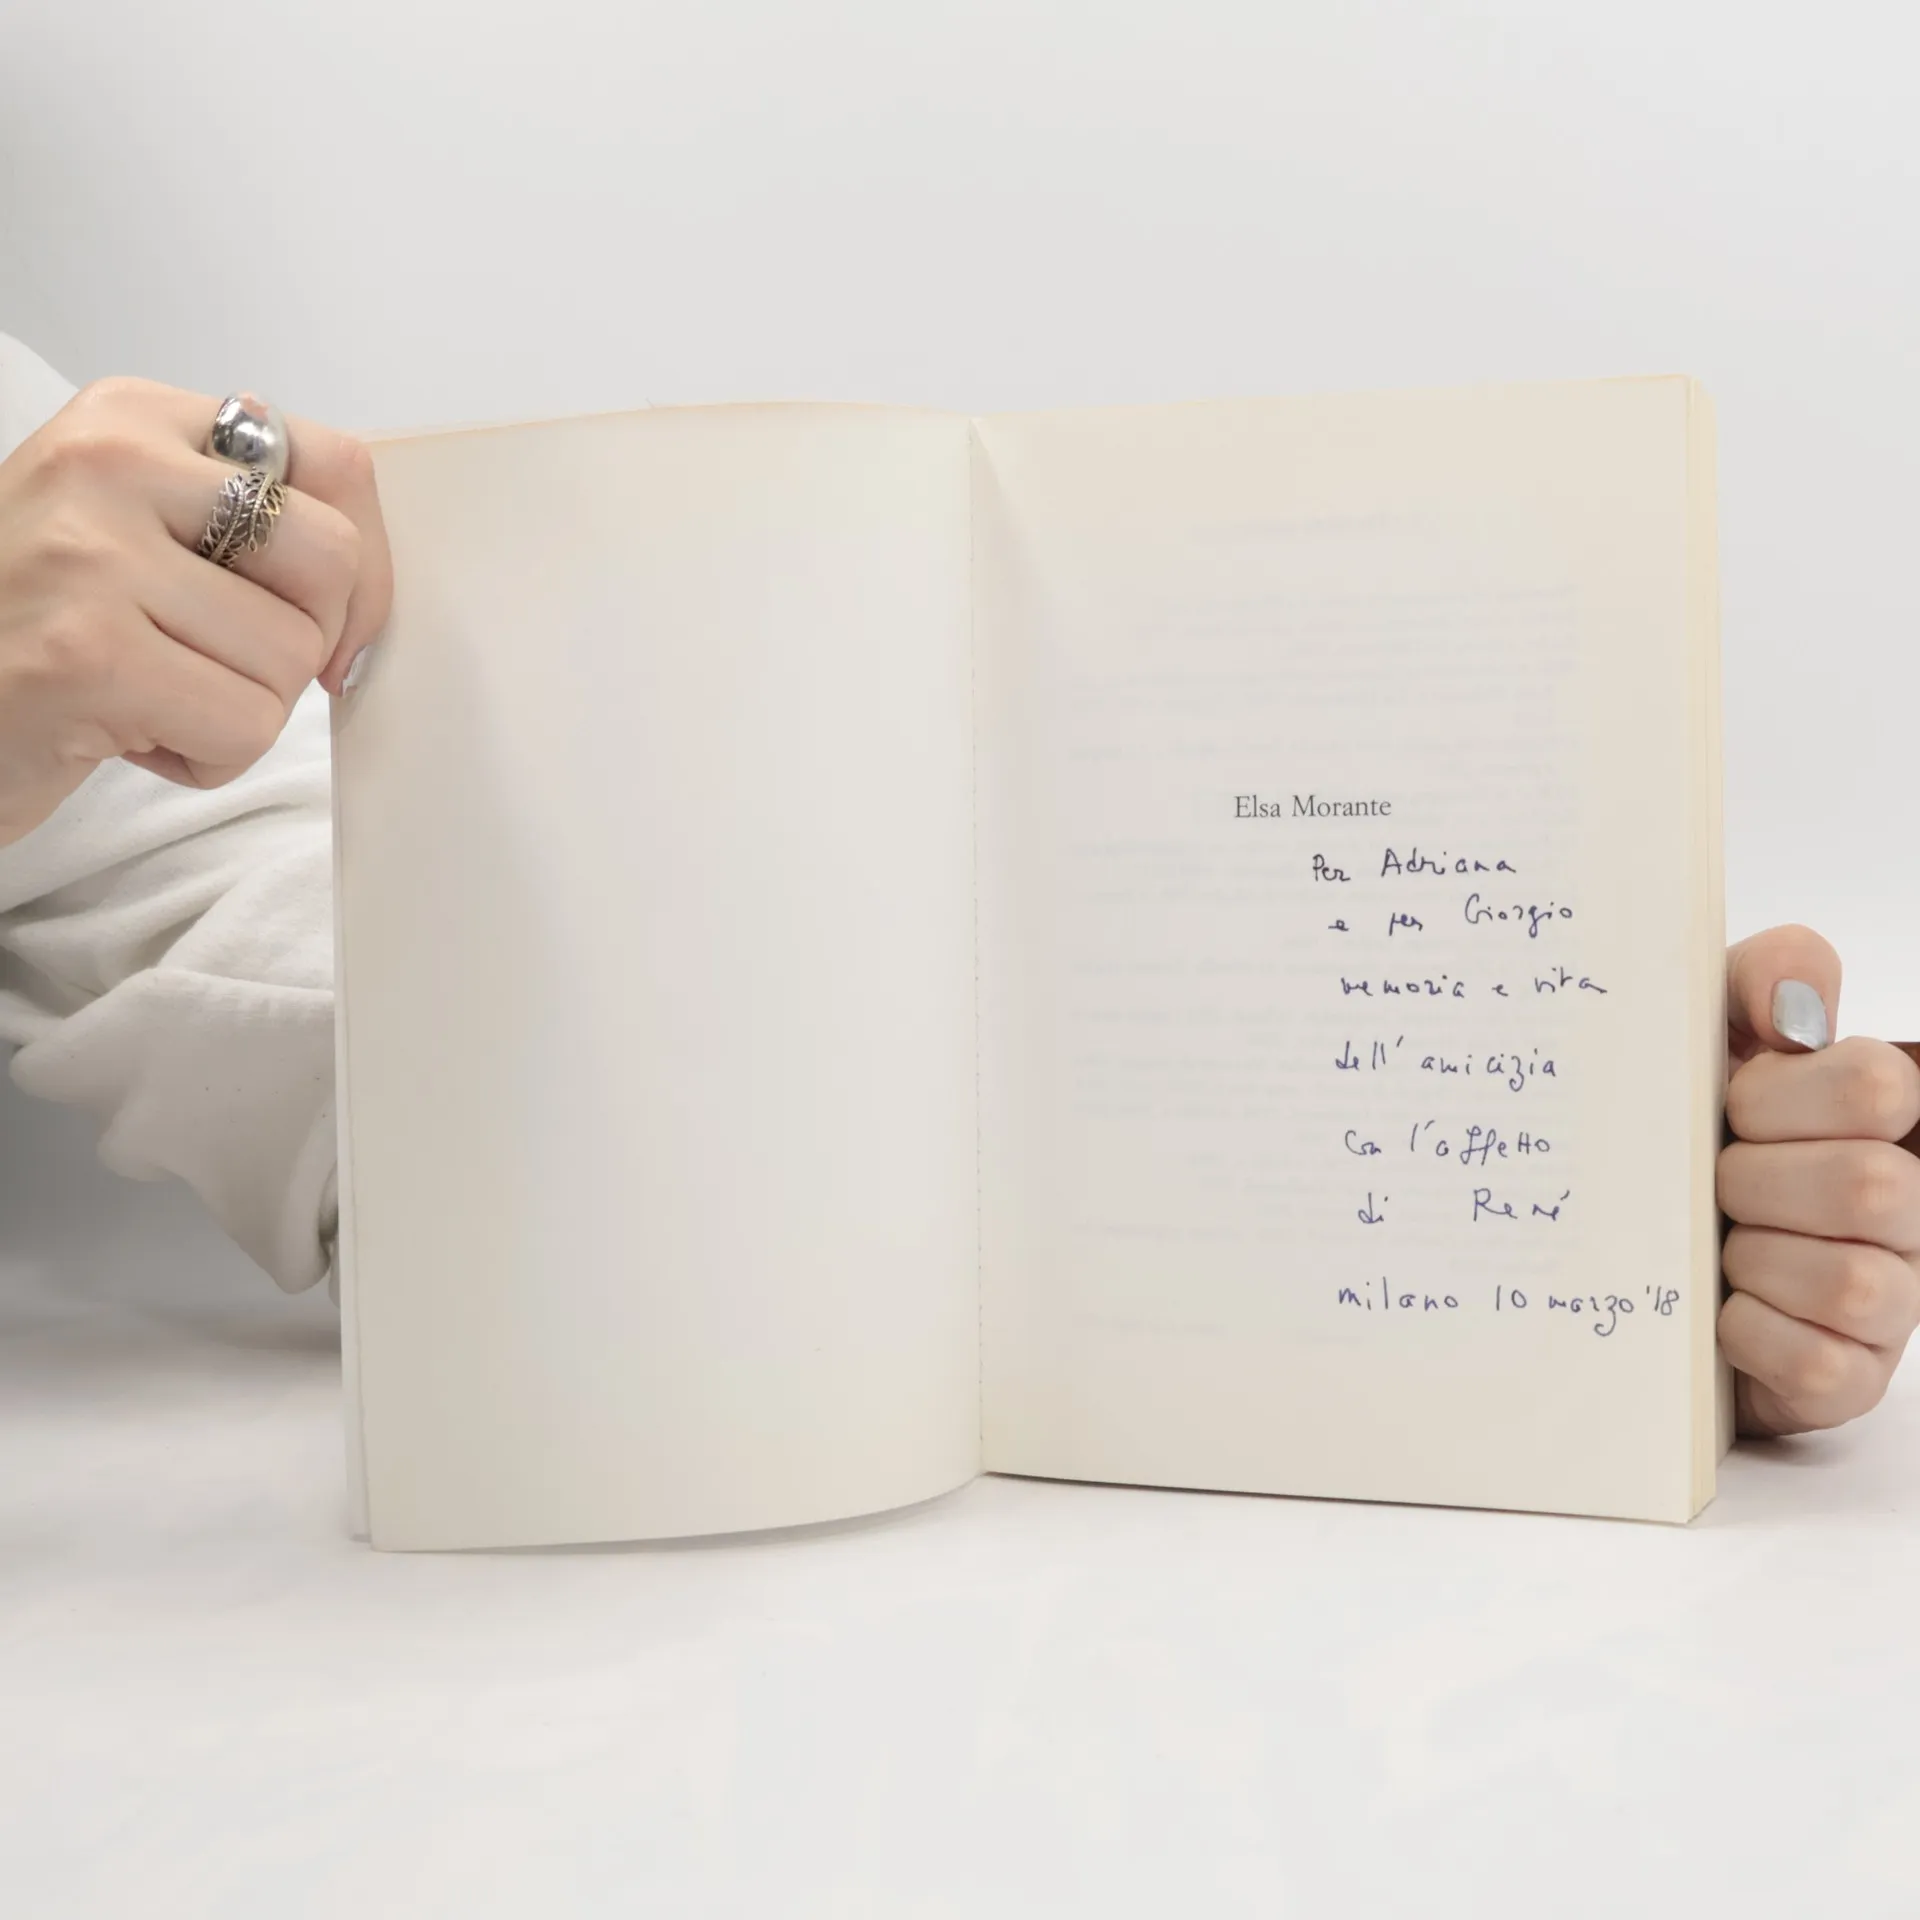 Elsa Morante
Per Adriana
e per Giorgio
memoria e vita
dell' amicizia
Con l'affetto
di René
milano 10 marzo '18